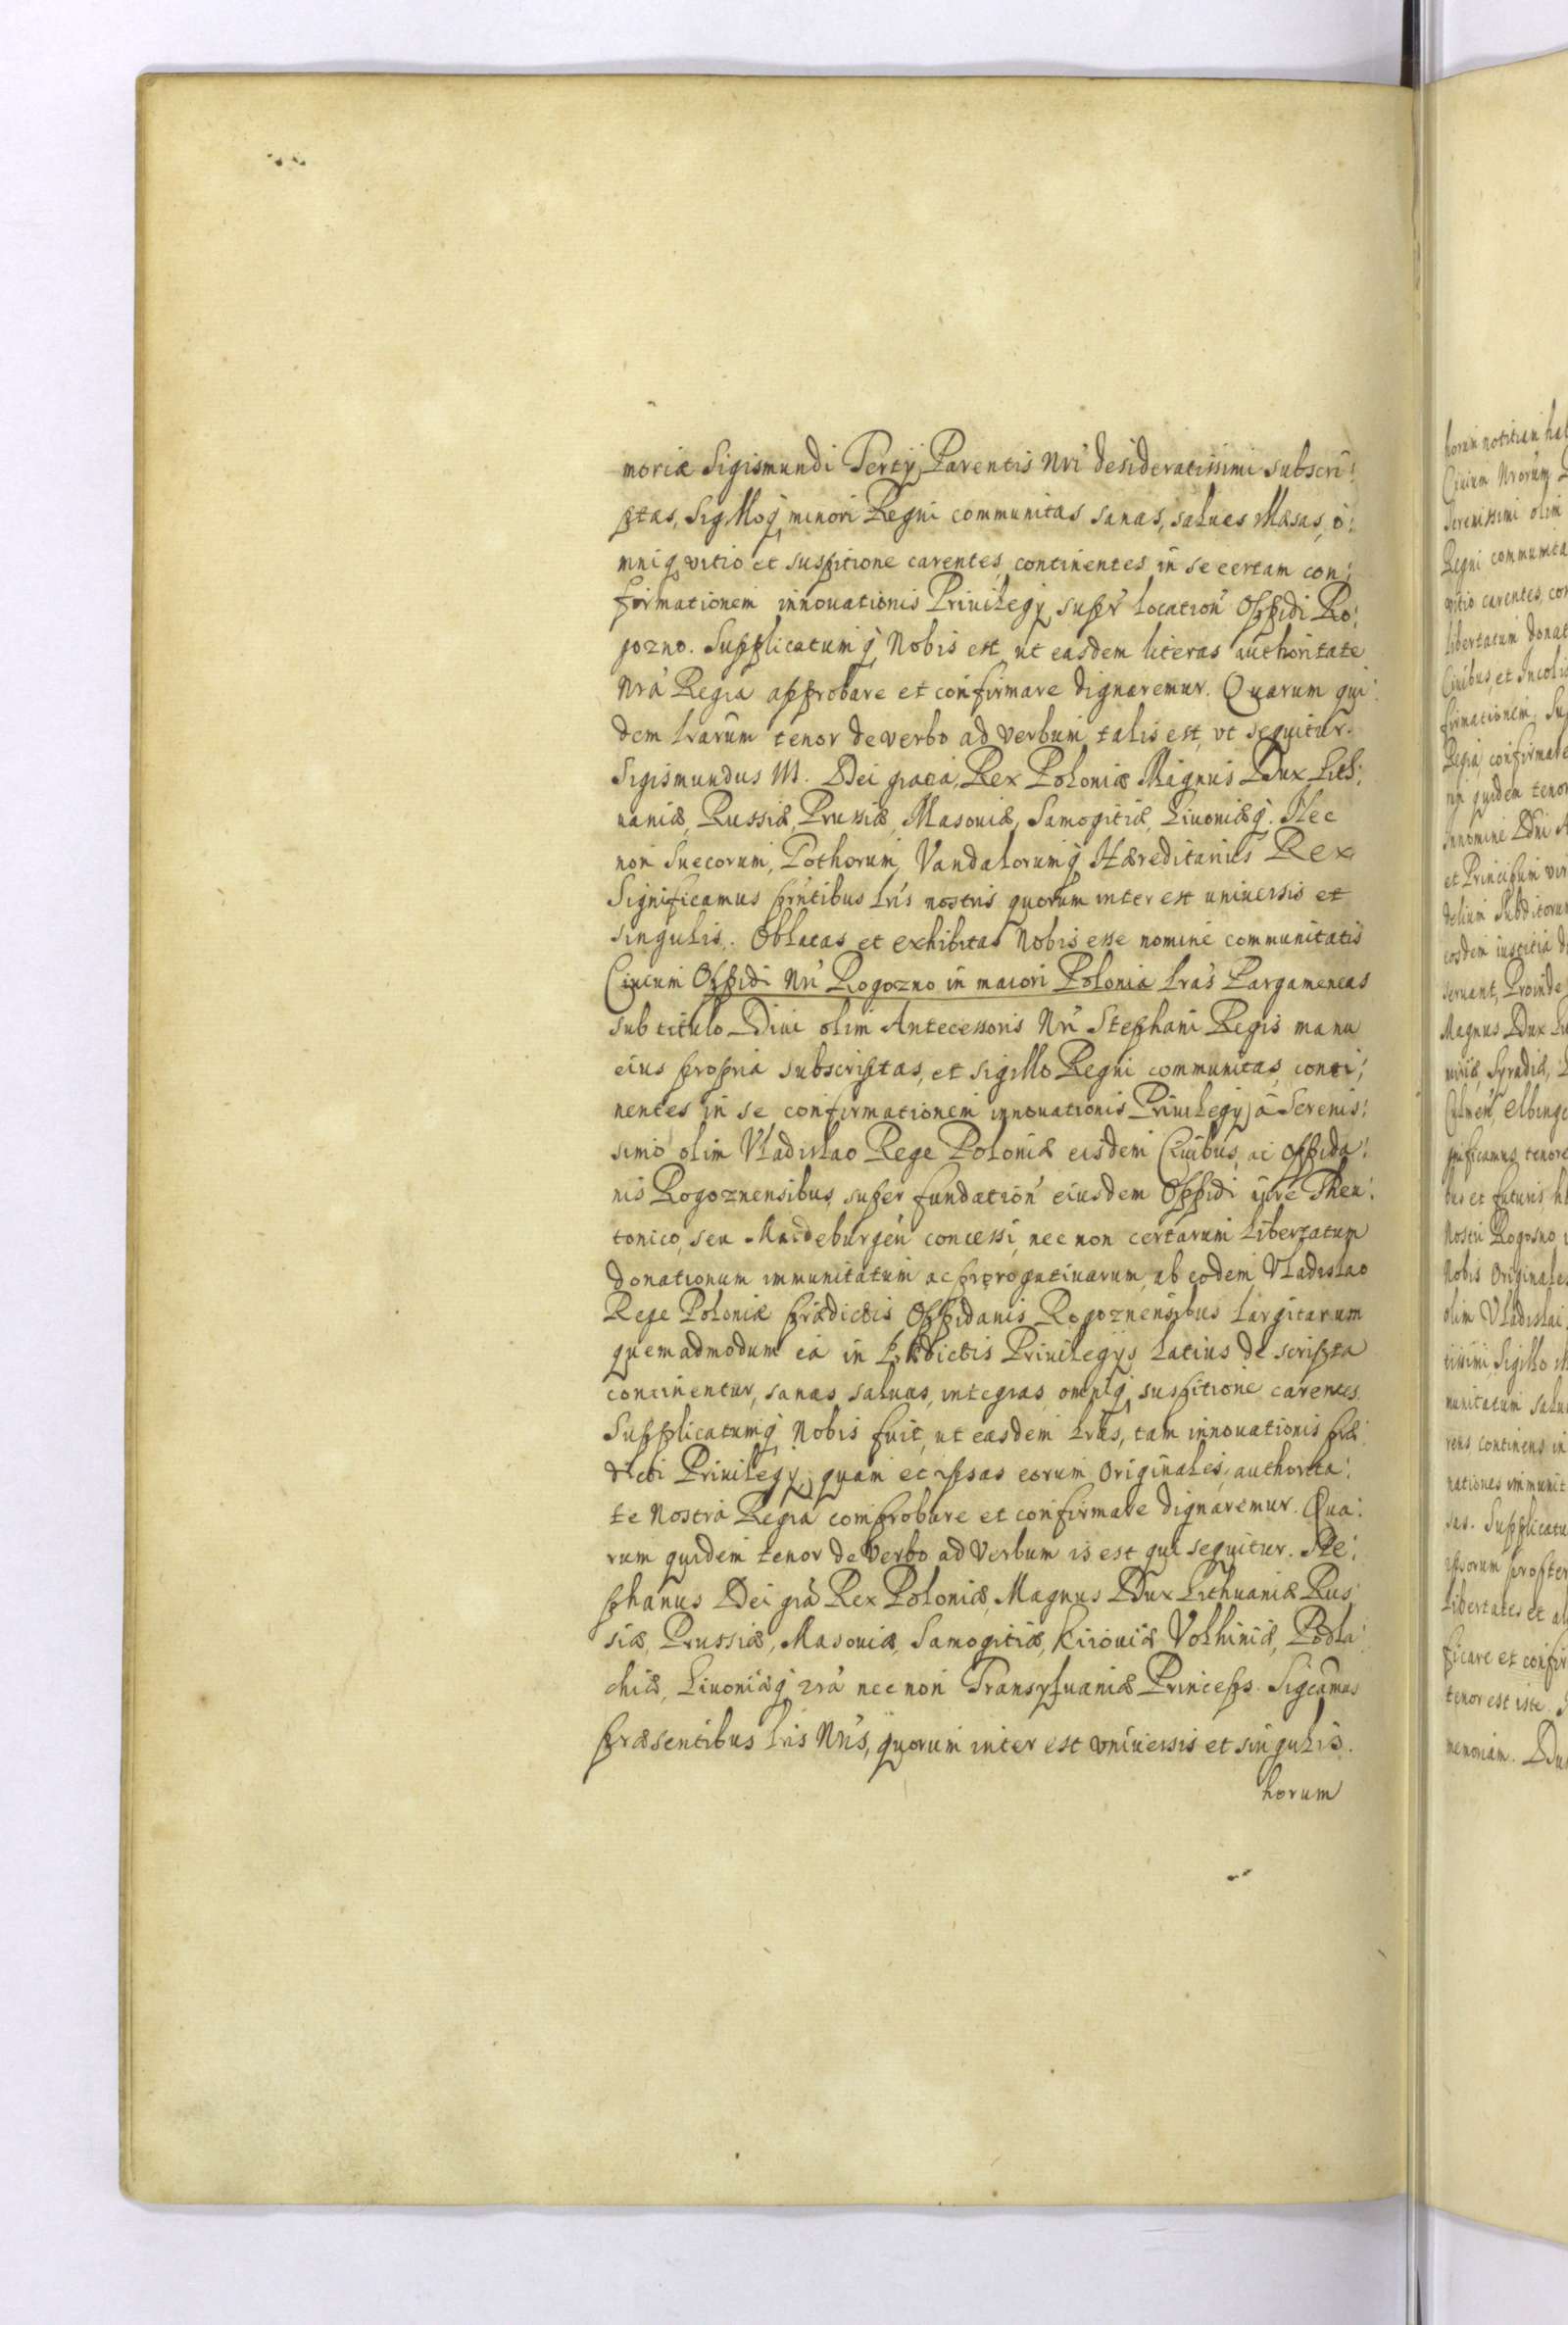 moriæ Sigismundi Tertÿ Parentis Nri desideratissimi subscri:
ptas, Sigilloq minori Regni communitas sanas, salues illæsas, o:
mniq vitio et suspitione carentes, continentes in se certam con:
firmationem innouationis Priuilegÿ supr location Oppidi Ro:
gozno. Supplicatumq Nobis est ut easdem literas authoritate
Nrà Regia approbare et confirmare dignaremur. Quarum qui:
dem lrarum tenor de verbo ad verbum talis est, vt sequitur.
Sigismundus III. Dei gratia, Rex Poloniæ Magnus Dux Lith:
uaniæ, Russiæ, Prussiæ, Masouiæ, Samogitiæ, Liuoniæq. Nec
non Suecorum, Gothorum, Vandalorumq Hæreditarius Rex
Significamus prntibus lris nostris quorum inter est uniuersis et
singulis. Oblatas et exhibitas Nobis esse nomine communitatis
Ciuium Oppidi Nri Rogozno in maiori Polonia lras Pargameneas
sub titulo Diui olim Antecessoris Nri Stephani Regis manu
eius propria subscriptas, et sigillo Regni communitas, conti:
nentes in se confirmationem innouationis Priuilegÿ à Serenis:
simo olim Vladislao Rege Poloniæ eisdem Ciuibus, ac oppida:
nis Rogoznensibus, super fundation eiusdem Oppidi iure Theu:
tonico, seu Maideburgen concessi, nec non certarum Libertatum
donationum immunitatum ac prærogatiuarum, ab eodem Vladislao
Rege Poloniæ prædictis Oppidanis Rogoznensibus largitarum
quemadmodum ea in prædictis Priuilegÿs latius de scripta
continentur, sanas, saluas, integras omniq suspitione carentes
Supplicatumq Nobis fuit, ut easdem lras, tam innouationis præ:
dicti Priuilegÿ, quam et ipsas eorum Originales, authorita:
te Nostra Regia comprobare et confirmare dignaremur. Qua:
rum quidem tenor de Verbo ad Verbum is est qui sequitur. Ste:
phanus Dei grà Rex Poloniæ, Magnus Dux Lithuaniæ Rus:
siæ, Prussiæ, Masouiæ, Samogitiæ, Kiiouiæ Volhiniæ, Podla:
chiæ, Liuoniæq zrà nec non Transyluaniæ Princeps. Sigcamus
Præsentibus lris Nris, quorum inter est vniuersis et singulis.
horum